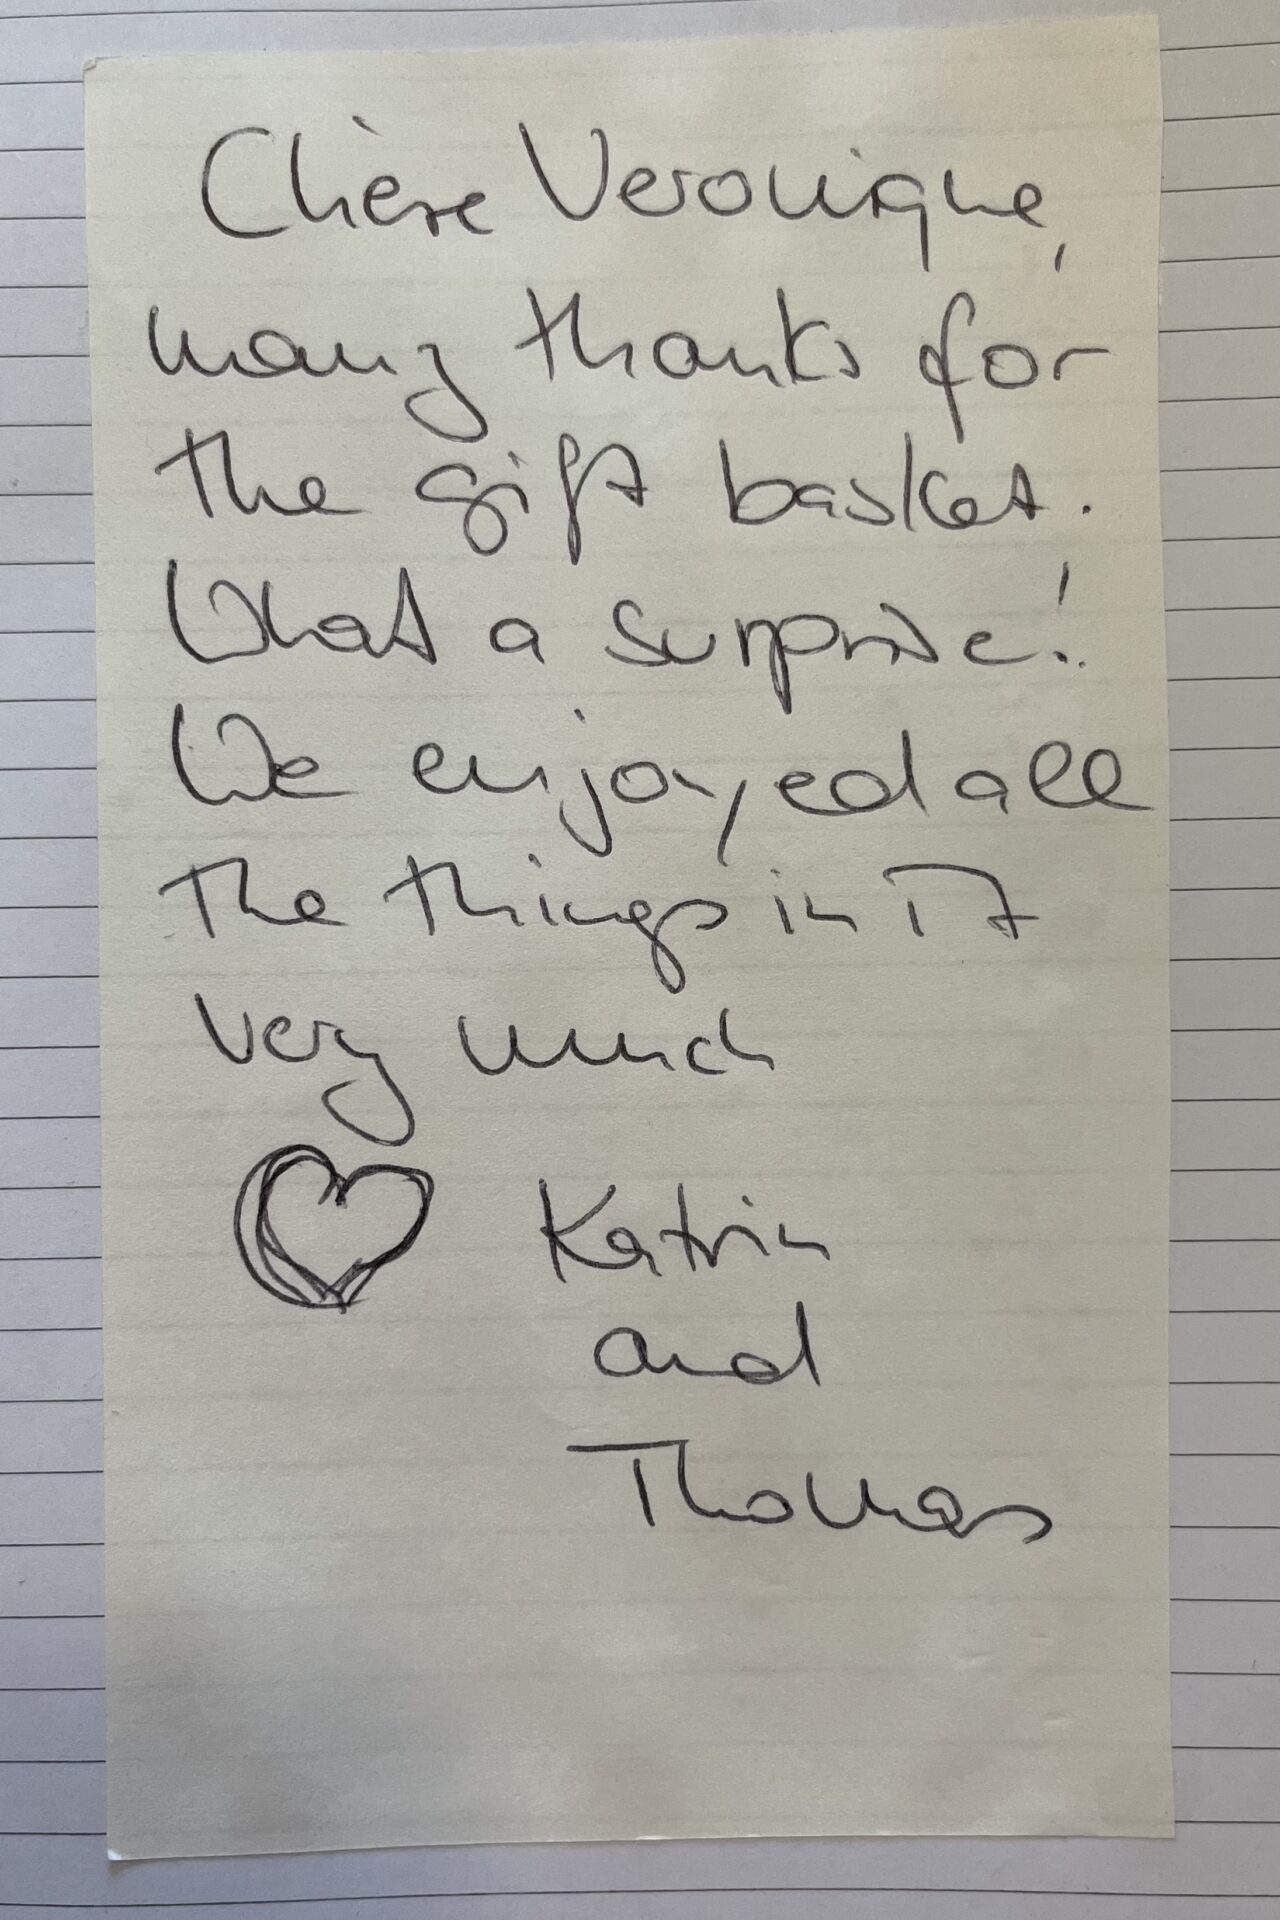 Chère Veronique,
many thanks for
the gift basket.
What a surprise!
We enjoyed all
the things in it
very much
Katrin
and
Thomas